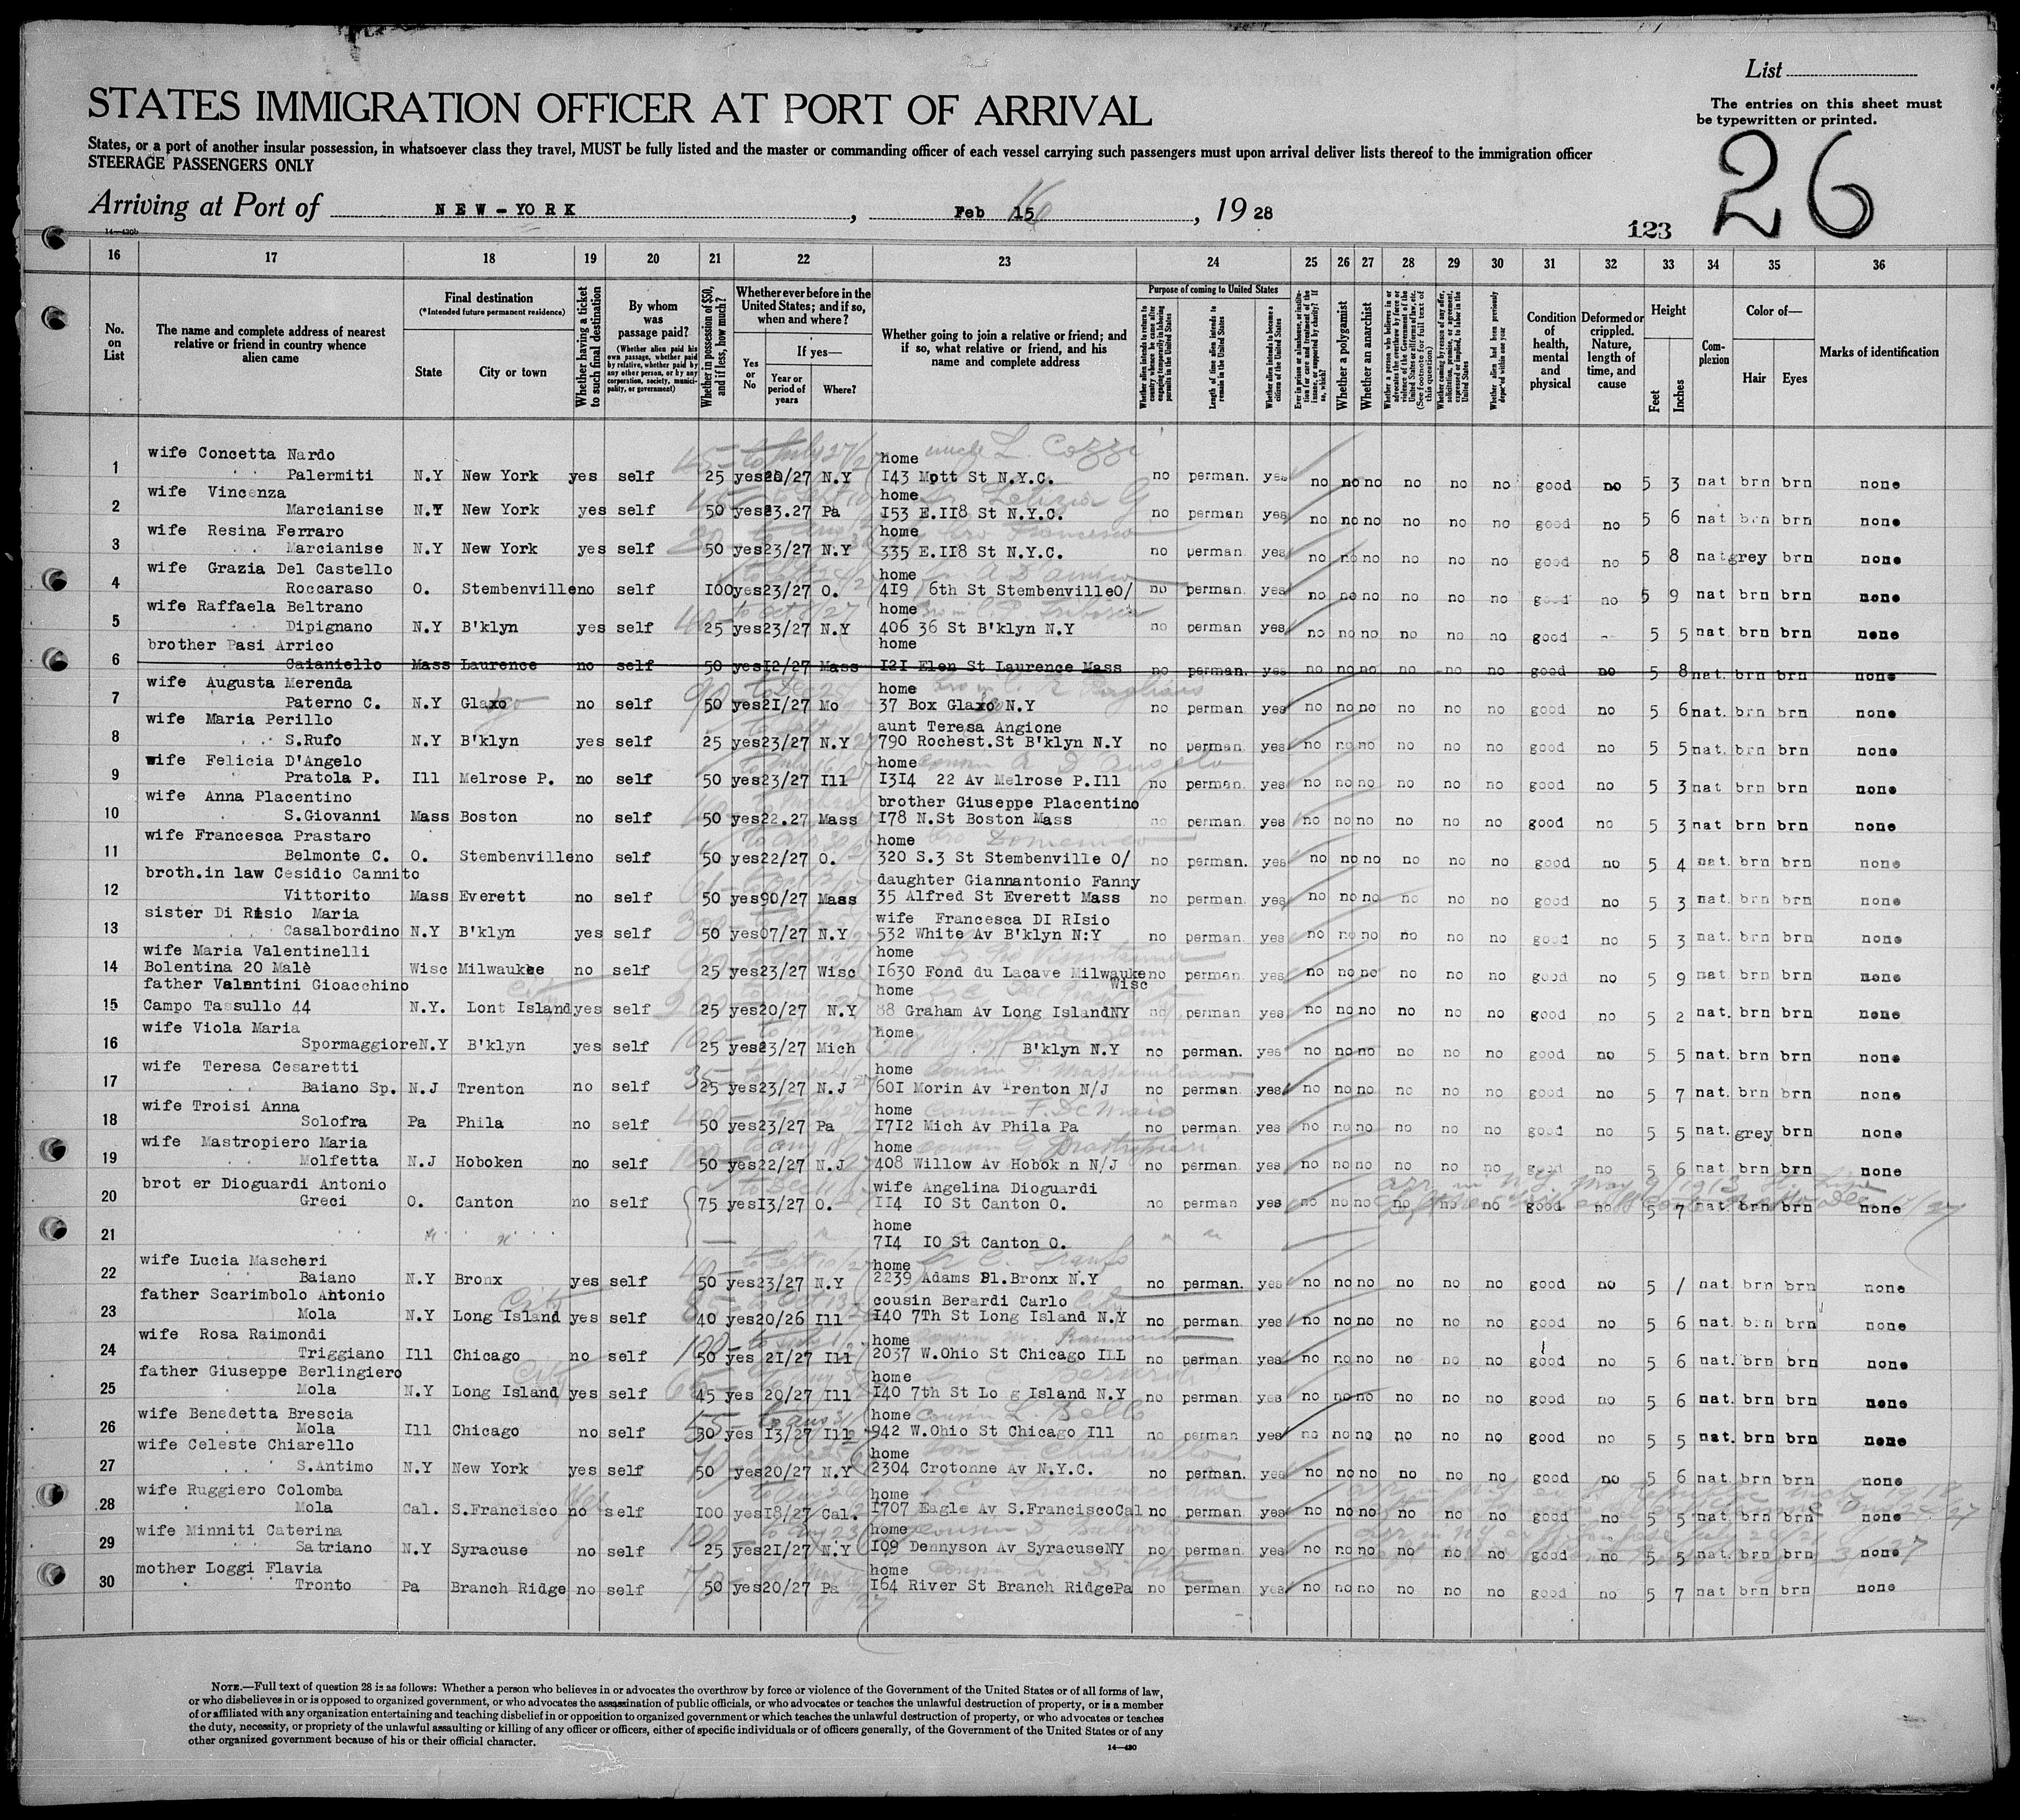 List
STATES IMMIGRATION OFFICER AT PORT OF ARRIVAL
The entries on this sheet must
be typewritten or printed.
States, or a port of another insular possession, in whatsoever class they travel, MUST be fully listed and the master or commanding officer of each vessel carrying such passengers must upon arrival deliver lists thereof to the immigration officer
STEERAGE PASSENGERS ONLY
26
Arriving at Port of NEW-YORK, Feb 15 16, 1928
14-430b
123
16 17 18 19 20 21 22 23 24 25 26 27 28 29 30 31 32 33 34 35 36
No. on List
The name and complete address of nearest relative or friend in country whence alien came
Final destination
(*Intended future permanent residence)
State
City or town
Whether having a ticket to such final destination
By whom was passage paid?
(Whether alien paid his own passage, whether paid by relative, whether paid by any other person, or by any corporation, society, municipality, or government)
Whether in possession of $50, and if less, how much?
Whether ever before in the United States; and if so, when and where?
Yes or No
If yes—
Year or period of years
Where?
Whether going to join a relative or friend; and if so, what relative or friend, and his name and complete address
Purpose of coming to United States
Whether alien intends to return to country whence he came after engaging temporarily in laboring pursuits in the United States
Length of time alien intends to remain in the United States
Whether alien intends to become a citizen of the United States
Ever in prison or almshouse, or institution for care and treatment of the insane, or supported by charity? If so, which?
Whether a polygamist
Whether an anarchist
Whether a person who believes in or advocates the overthrow by force or violence of the Government of the United States or all forms of law, etc. (See footnote for full text of this question)
Whether coming by reason of any offer, solicitation, promise, or agreement, expressed or implied, to labor in the United States
Whether alien had been previously deported within one year
Condition of health, mental and physical
Deformed or crippled. Nature, length of time, and cause
Height
Feet
Inches
Complexion
Color of—
Hair
Eyes
Marks of identification
wife Concetta Nardo home uncle L. Cozzi
1 Palermiti N.Y New York yes self 25 yes 20/27 N.Y 143 Mott St N.Y.C. no perman. yes no no no no no no good no 5 3 nat brn brn none
wife Vincenza home
2 Marcianise N.Y New York yes self 50 yes 23.27 Pa 153 E.118 St N.Y.C. no perman yes no no no no no no good no 5 6 nat brn brn none
wife Resina Ferraro home bro Francesco
3 Marcianise N.Y New York yes self 50 yes 23/27 N.Y 335 E.118 St N.Y.C. no perman. yes no no no no no no good no 5 8 nat grey brn none
wife Grazia Del Castello home
4 Roccaraso O. Stembenville no self 100 yes 23/27 O. 419 6th St Stembenville O/ no perman. yes no no no no no no good no 5 9 nat brn brn none
wife Raffaela Beltrano home
5 Dipignano N.Y B'klyn yes self 25 yes 23/27 N.Y 406 36 St B'klyn N.Y no perman yes no no no no no no good 5 5 nat. brn brn none
brother Pasi Arrico home
6 Caianiello Mass Laurence no self 50 yes 12/27 Mass 121 Elen St Laurence Mass no perman. yes no no no no no no good no 5 8 nat. brn brn none
wife Augusta Merenda home
7 Paterno C. N.Y Glaxo no self 50 yes 21/27 Mo 37 Box Glaxo N.Y no perman yes no no no no no no good no 5 6 nat. brn brn none
wife Maria Perillo aunt Teresa Angione
8 S.Rufo N.Y B'klyn yes self 25 yes 23/27 N.Y 790 Rochest.St B'klyn N.Y no perman. yes no no no no no no good no 5 5 nat. brn brn none
wife Felicia D'Angelo home cousin A D'Angelo
9 Pratola P. Ill Melrose P. no self 50 yes 23/27 Ill 1314 22 Av Melrose P.Ill no perman. yes no no no no no no good no 5 3 nat brn brn none
wife Anna Placentino brother Giuseppe Placentino
10 S.Giovanni Mass Boston no self 50 yes 22.27 Mass 178 N.St Boston Mass no perman. yes no no no no no no good no 5 3 nat brn brn none
wife Francesca Prastaro home bro Domenico
11 Belmonte C. O. Stembenville no self 50 yes 22/27 O. 320 S.3 St Stembenville O/ no perman. yes no no no no no no good no 5 4 nat. brn brn none
broth.in law Cesidio Cannito daughter Giannantonio Fanny
12 Vittorito Mass Everett no self 50 yes 90/27 Mass 35 Alfred St Everett Mass no perman. yes no no no no no no good no 5 3 nat. brn brn none
sister Di Risio Maria wife Francesca DI RIsio
13 Casalbordino N.Y B'klyn yes self 50 yes 07/27 N.Y 532 White Av B'klyn N:Y no perman. yes no no no no no no good no 5 3 nat. brn brn none
wife Maria Valentinelli home
14 Bolentina 20 Malè Wisc Milwaukee no self 25 yes 23/27 Wisc 1630 Fond du Lacave Milwauke Wisc no perman. yes no no no no no no good no 5 9 nat. brn brn none
father Valentini Gioacchino home
15 Campo Tassullo 44 N.Y. Lont Island City yes self 25 yes 20/27 N.Y 88 Graham Av Long Island NY no perman yes no no no no no no good no 5 2 nat. brn brn none
wife Viola Maria home
16 Spormaggiore N.Y B'klyn yes self 25 yes 23/27 Mich B'klyn N.Y no perman. yes no no no no no no good no 5 5 nat. brn brn none
wife Teresa Cesaretti home
17 Baiano Sp. N.J Trenton no self 25 yes 23/27 N.J 601 Morin Av Trenton N/J no perman. yes no no no no no no good no 5 7 nat. brn brn none
wife Troisi Anna home cousin F. De Maio
18 Solofra Pa Phila no self 50 yes 23/27 Pa 1712 Mich Av Phila Pa no perman. yes no no no no no no good no 5 5 nat. grey brn none
wife Mastropiero Maria home
19 Molfetta N.J Hoboken no self 50 yes 22/27 N.J 408 Willow Av Hobok n N/J no perman. yes no no no no no no good no 5 6 nat brn brn none
brot er Dioguardi Antonio wife Angelina Dioguardi
20 Greci O. Canton no self 75 yes 13/27 O. 114 10 St Canton O. no perman yes no no no no no no good no 5 7 nat brn brn none
21 home
714 10 St Canton O.
wife Lucia Mascheri home
22 Baiano N.Y Bronx yes self 50 yes 23/27 N.Y 2239 Adams Pl.Bronx N.Y no perman. yes no no no no no no good no 5 / nat. brn brn none
father Scarimbolo Antonio cousin Berardi Carlo
23 Mola N.Y Long Island City yes self 40 yes 20/26 Ill 140 7Th St Long Island N.Y City no perman. yes no no no no no no good no 5 6 nat. brn brn none
wife Rosa Raimondi home
24 Triggiano Ill Chicago no self 50 yes 21/27 Ill 2037 W.Ohio St Chicago ILL no perman. yes no no no no no no good no 5 6 nat. brn brn none
father Giuseppe Berlingiero home
25 Mola N.Y Long Island City yes self 45 yes 20/27 Ill 140 7th St Lo g Island N.Y no perman. yes no no no no no no good no 5 6 nat. brn brn none
wife Benedetta Brescia home cousin L. Bello
26 Mola Ill Chicago no self 30 yes 13/27 Ill 942 W.Ohio St Chicago Ill no perman yes no no no no no no good no 5 5 nat. brn brn none
wife Celeste Chiarello home
27 S.Antimo N.Y New York yes self 50 yes 20/27 N.Y 2304 Crotonne Av N.Y.C. no perman. yes no no no no no no good no 5 6 nat. brn brn none
wife Ruggiero Colomba home
28 Mola Cal. S.Francisco no self 100 yes 18/27 Cal. 1707 Eagle Av S.Francisco Cal no perman. yes no no no no no no good no 5 5 nat. brn brn none
wife Minniti Caterina home
29 Satriano N.Y Syracuse no self 25 yes 21/27 N.Y 109 Dennyson Av Syracuse NY no perman. yes no no no no no no good no 5 5 nat. brn brn none
mother Loggi Flavia home
30 Tronto Pa Branch Ridge no self 50 yes 20/27 Pa 164 River St Branch Ridge Pa no perman. yes no no no no no no good no 5 7 nat brn brn none
NOTE.—Full text of question 28 is as follows: Whether a person who believes in or advocates the overthrow by force or violence of the Government of the United States or of all forms of law,
or who disbelieves in or is opposed to organized government, or who advocates the assassination of public officials, or who advocates or teaches the unlawful destruction of property, or is a member
of or affiliated with any organization entertaining and teaching disbelief in or opposition to organized government or which teaches the unlawful destruction of property, or who advocates or teaches
the duty, necessity, or propriety of the unlawful assaulting or killing of any officer or officers, either of specific individuals or of officers generally, of the Government of the United States or of any
other organized government because of his or their official character.
14—430